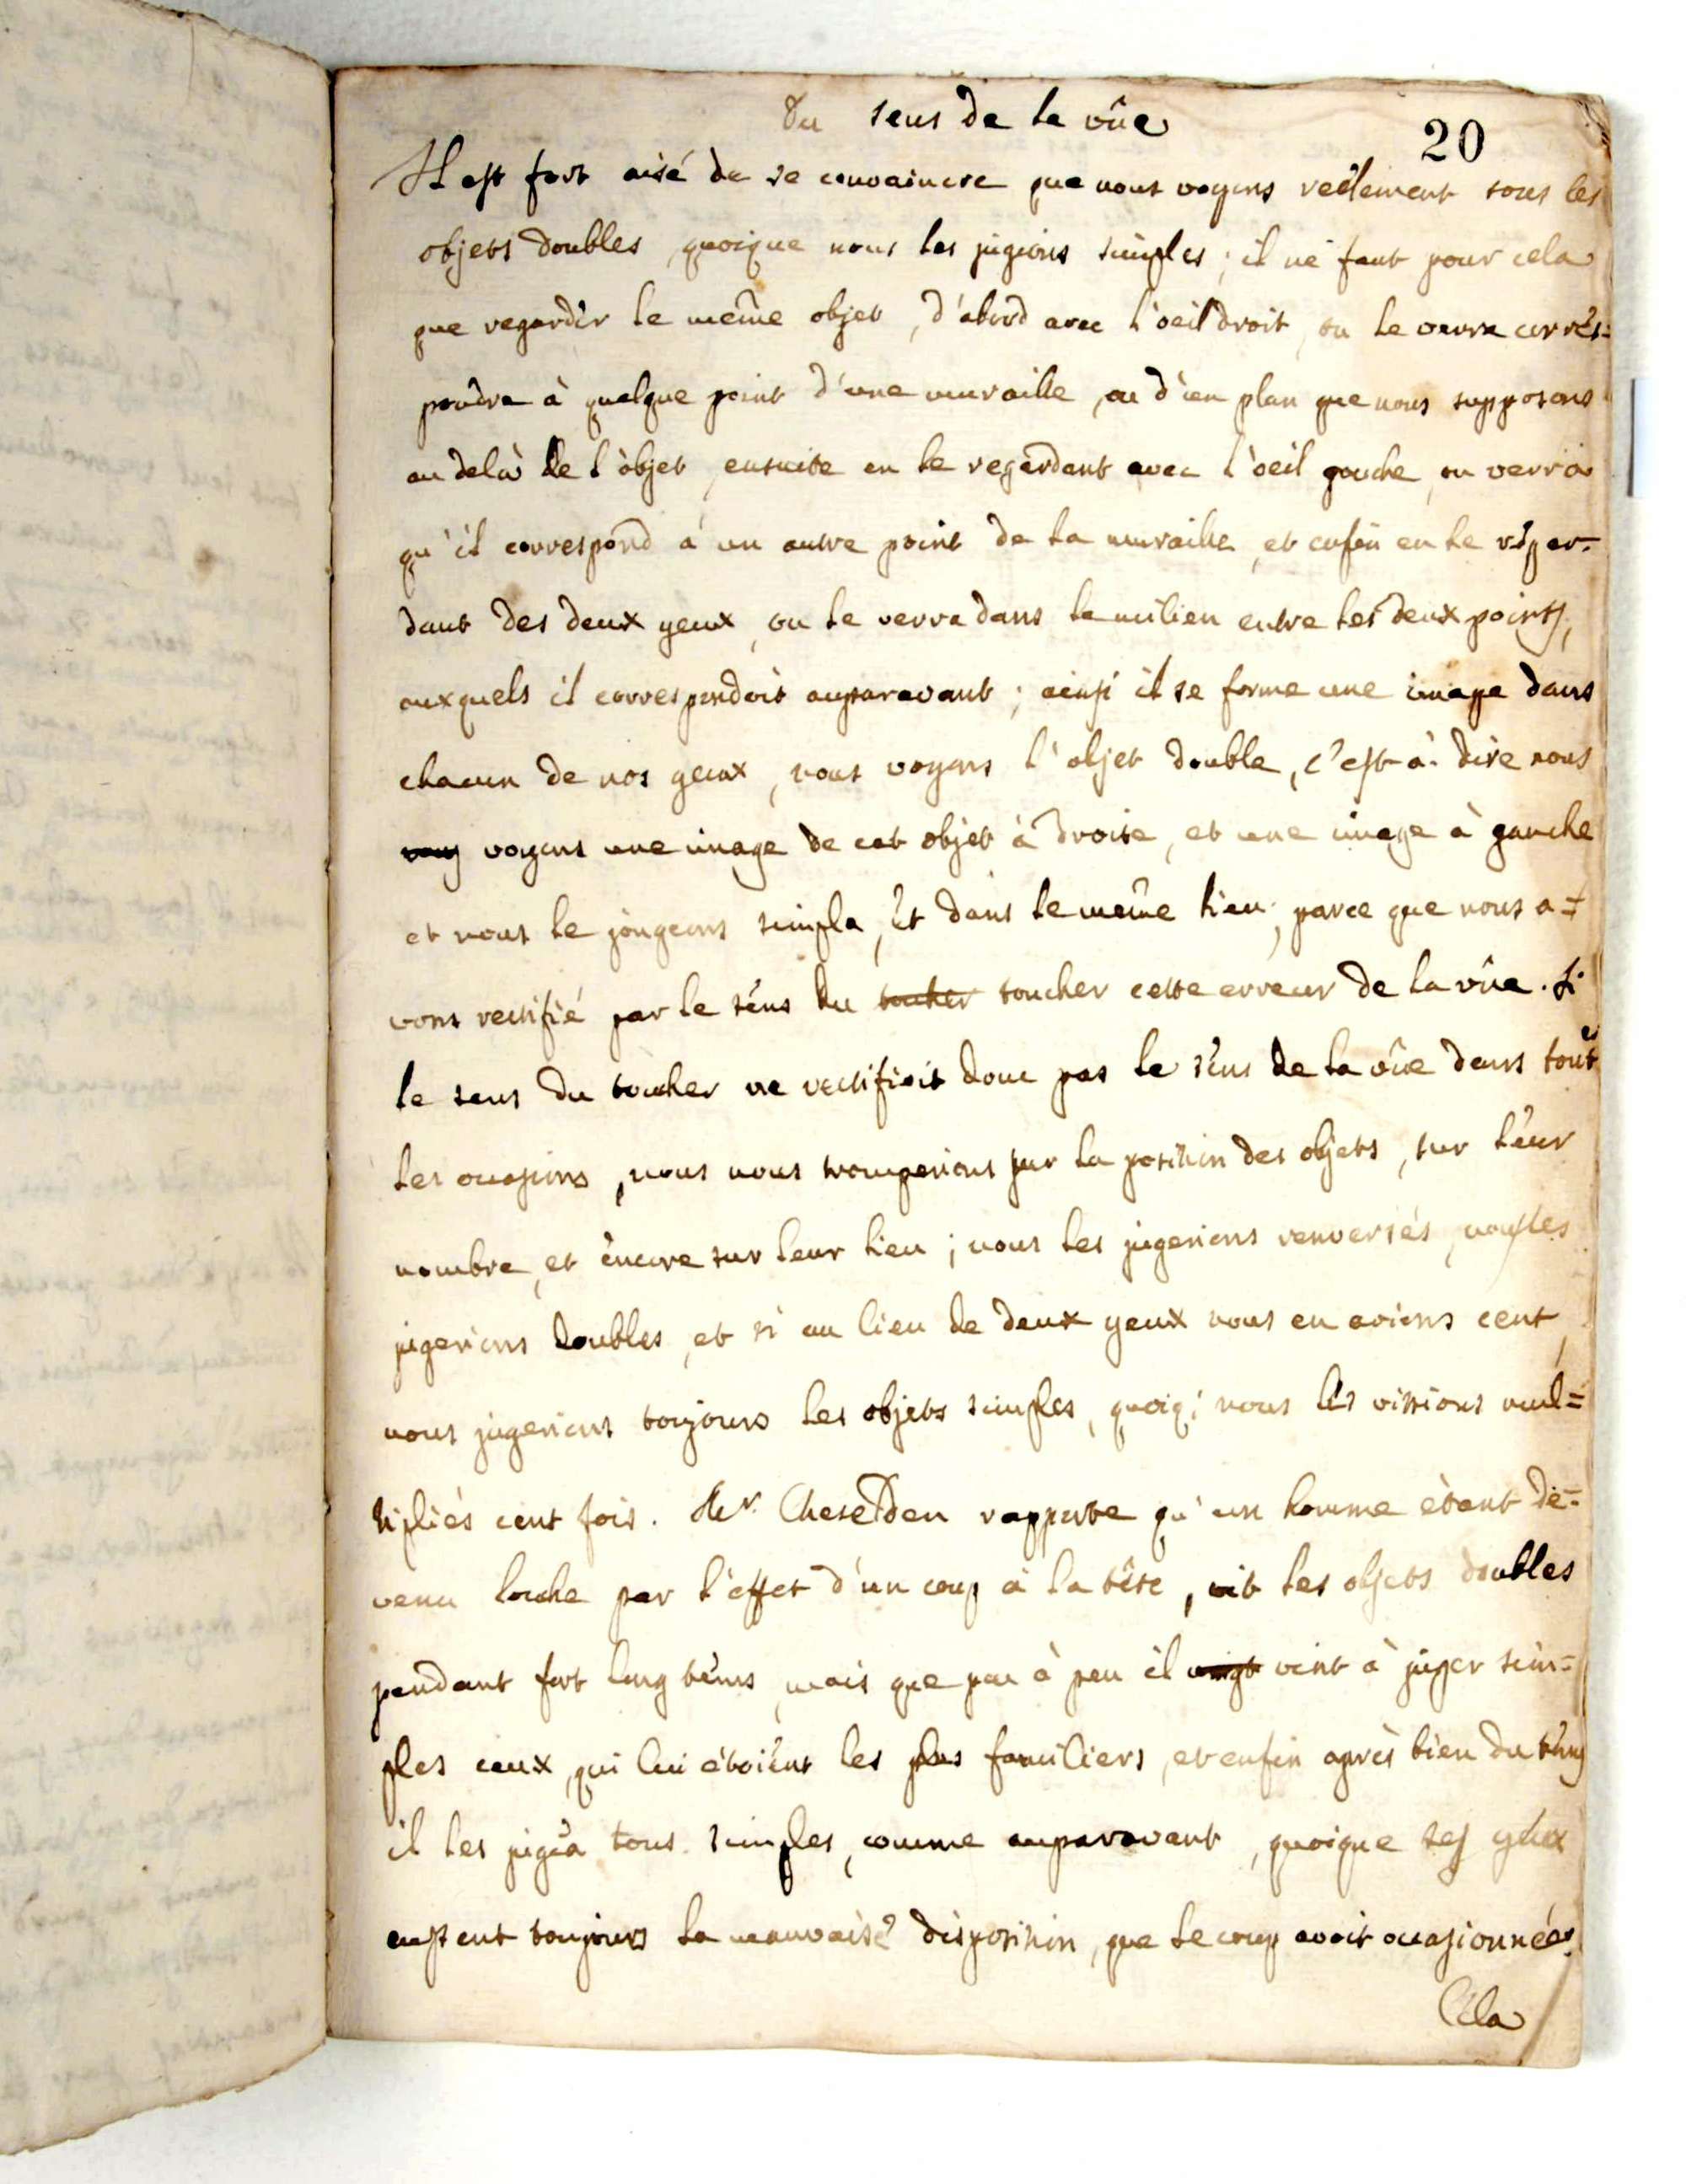 Du sens de la vûe
20
Il est fort aisé de se convaincre que nous voyons reélement tous les
objets doubles, quoique nous les jugions simples; il ne faut pour cela
que regarder le même objet, d'abord avec l'oeil droit, on le verra corrés=
pondre à quelque point d'une muraille, ou d'un plan que nous supposons
au delà de l'objet, ensuite en le regardant avec l'oeil gauche, on verra
qu'il correspond à un autre point de la muraille, et enfin en le régar=
dant des deux yeux, on le verra dans le milieu entre les deux points,
auxquels il correspondoit auparavant; ainsi il se forme une image dans
chacun de nos yeux, nous voyons l'objet double, c'est-à-dire nous
voy voyons une image de cet objet à droite, et une image à gauche
et nous le jougeons simple, Et dans le même lieu, parce que nous a=
vons rectifié par le séns du toucher toucher cette erreur de la vûe. Si
le sens du toucher ne rectifioit donc pas le séns de la vûe dans toutes
les occasions, nous nous tromperions sur la position des objets, sur leur
nombre, et éncore sur leur lieu; nous les jugerions renversés, nous les
jugerions doubles, et si au lieu de deux yeux nous en avions cent,
nous jugerions toujours les objets simples, quoiq; nous lés vissions mul=
tipliés cent fois. Mr. Cheselden rapporte qu'un homme étant de=
venu louche par l'effet d'un coup à la tête, vit les objets doubles
pendant fort long téms, mais que peu à peu il vingt vint à juger sim=
ples ceux, qui lui étoiént les plus familiers, et enfin après bien du téms
il les jugéa tous simples, comme auparavant, quoique ses yéux
eussent toujours la mauvaise disposition, que le coup avoit occasionnée.
Cela